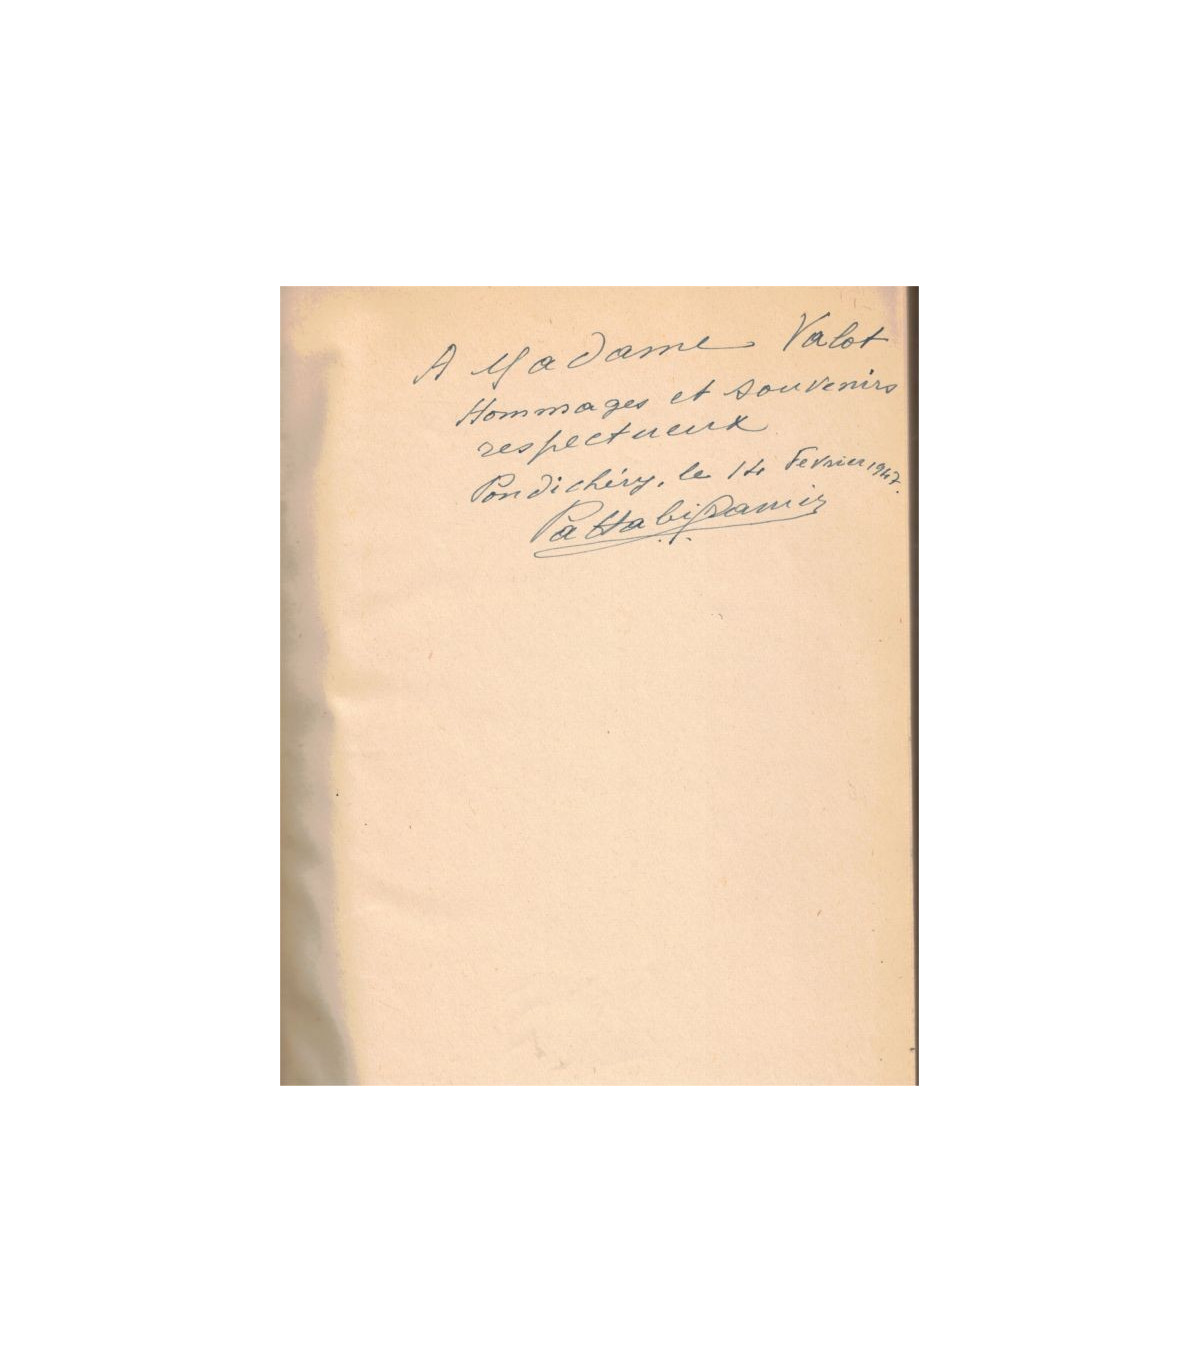 A Madame Valot
Hommages et souvenirs
respectueux
Pondichéry, le 14 Fevrier 1947.
PattabiRamin